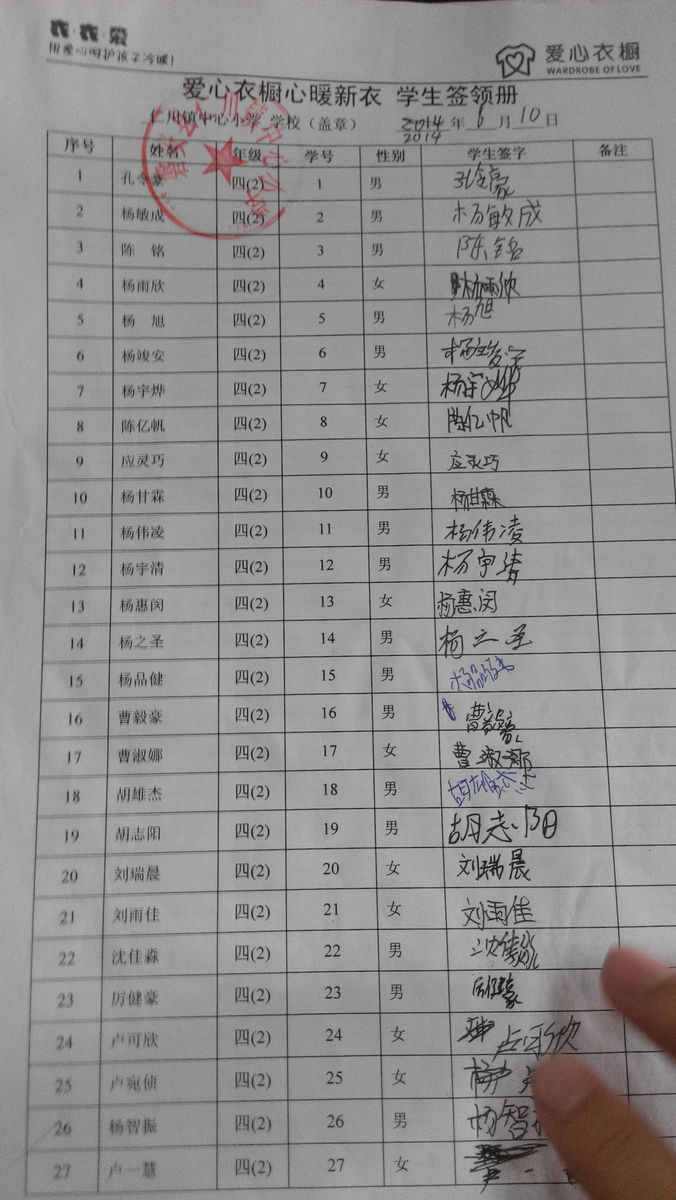 衣·衣·祭
用爱心呵护孩子冷暖!
爱心衣橱
WARDROBE OF LOVE
爱心衣橱心暖新衣 学生签领册
仁川镇中心小学 学校(盖章) 2014 年 6 月 10 日
2014
序号 姓名 年级 学号 性别 学生签字 备注
1 孔令豪 四(2) 1 男 孔令豪
2 杨敏成 四(2) 2 男 杨敏成
3 陈 铭 四(2) 3 男 陈铭
4 杨雨欣 四(2) 4 女 杨雨欣
5 杨 旭 四(2) 5 男 杨旭
6 杨竣安 四(2) 6 男 杨竣安
7 杨宇烨 四(2) 7 女 杨宇烨
8 陈亿帆 四(2) 8 女 陈亿帆
9 应灵巧 四(2) 9 女 应灵巧
10 杨甘霖 四(2) 10 男 杨甘霖
11 杨伟凌 四(2) 11 男 杨伟凌
12 杨宇清 四(2) 12 男 杨宇清
13 杨惠闵 四(2) 13 女 杨惠闵
14 杨之圣 四(2) 14 男 杨之圣
15 杨品健 四(2) 15 男 杨品健
16 曹毅豪 四(2) 16 男 曹毅豪
17 曹淑娜 四(2) 17 女 曹淑娜
18 胡雄杰 四(2) 18 男 胡雄杰
19 胡志阳 四(2) 19 男 胡志阳
20 刘瑞晨 四(2) 20 女 刘瑞晨
21 刘雨佳 四(2) 21 女 刘雨佳
22 沈佳淼 四(2) 22 男 沈佳淼
23 厉健豪 四(2) 23 男 厉健豪
24 卢可欣 四(2) 24 女 卢可欣
25 卢宛侦 四(2) 25 女
26 杨智振 四(2) 26 男 杨智
27 卢一慧 四(2) 27 女